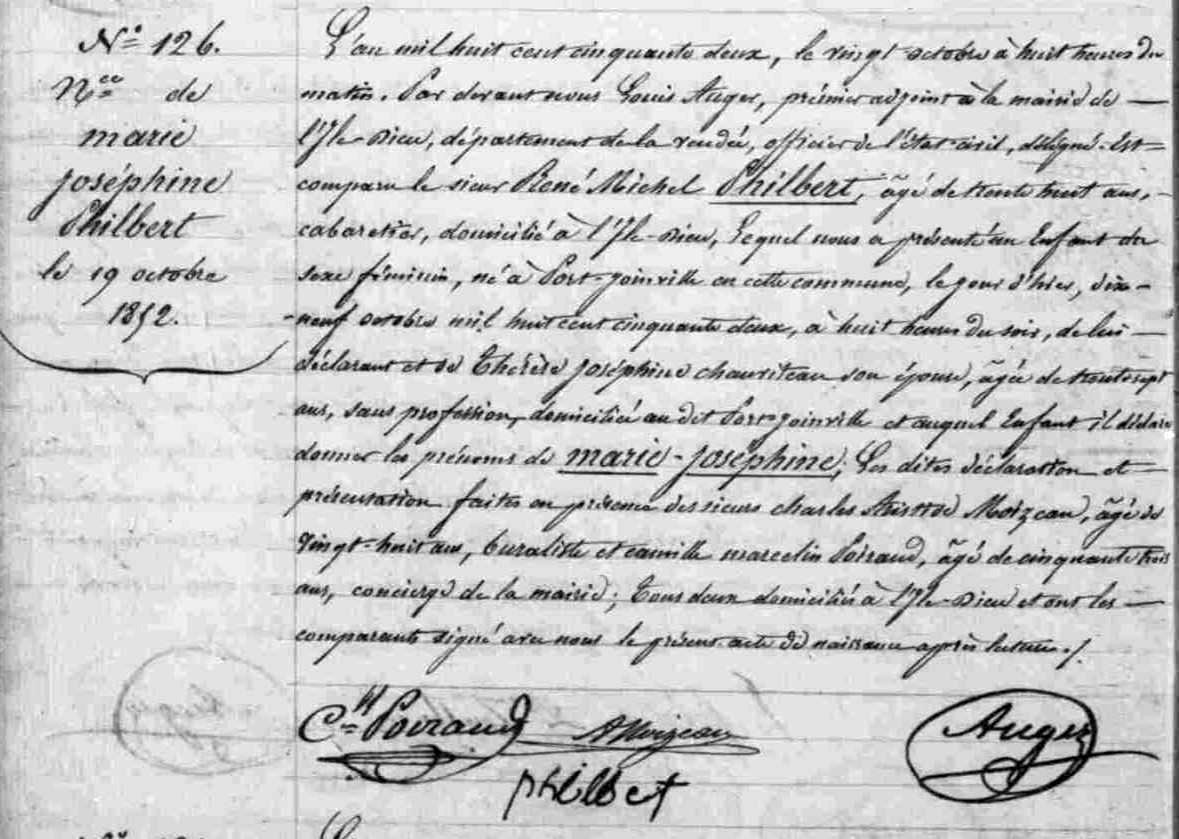 N° 126.
N.ce de
marie
joséphine
Philbert
le 19 octobre
1852.
L'an mil huit cent cinquante deux, le vingt octobre à huit heures du
matin. Par devant nous Louis Auger, prémier adjoint à la mairie de —
l'Ile-Dieu, département de la vendée, officier de l'état-civil, délégué. Est =
comparu le sieur René Michel Philbert, âgé de trente huit ans, -
cabaretier, domicilié à l'Ile-Dieu, Lequel nous a présenté un Enfant du
sexe féminin, né à Port-joinville en cette commune, le jour d'hier, dix-
-neuf octobre mil huit cent cinquante deux, à huit heures du soir, de lui —
déclarant et de Thérèse joséphine chauviteau son épouse, âgée de trente sept
ans, sans profession, domiciliée au dit Port-joinville et auquel Enfant il déclare
donner les prénoms de marie-joséphine; Les dites déclaration et —
présentation faites en présence des sieurs charles Aristide Moizeau, âgé de
vingt-huit ans, buraliste et camille marcelin Poiraud, âgé de cinquante trois
ans, concierge de la mairie; Tous deux domiciliés à l'Ile-Dieu et ont les —
comparants signé avec nous le présent acte de naissance après lecture ./.
C=lle Poiraud AMoizeau Auger
philbert